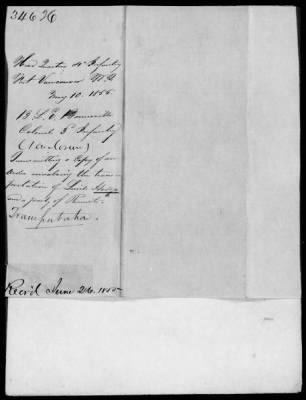 346 H
Head Quarters 4th Infantry
Fort Vancouver W.T.
May 10. 1855.
B. L. E. Bonneville
Colonel 3d Infantry
(1 Enclosure)
Transmitting a Copy of an
order involving the trans-
portation of Lieut
and a party of Recruits.
Transportation.
Rec'd June 26. 1855